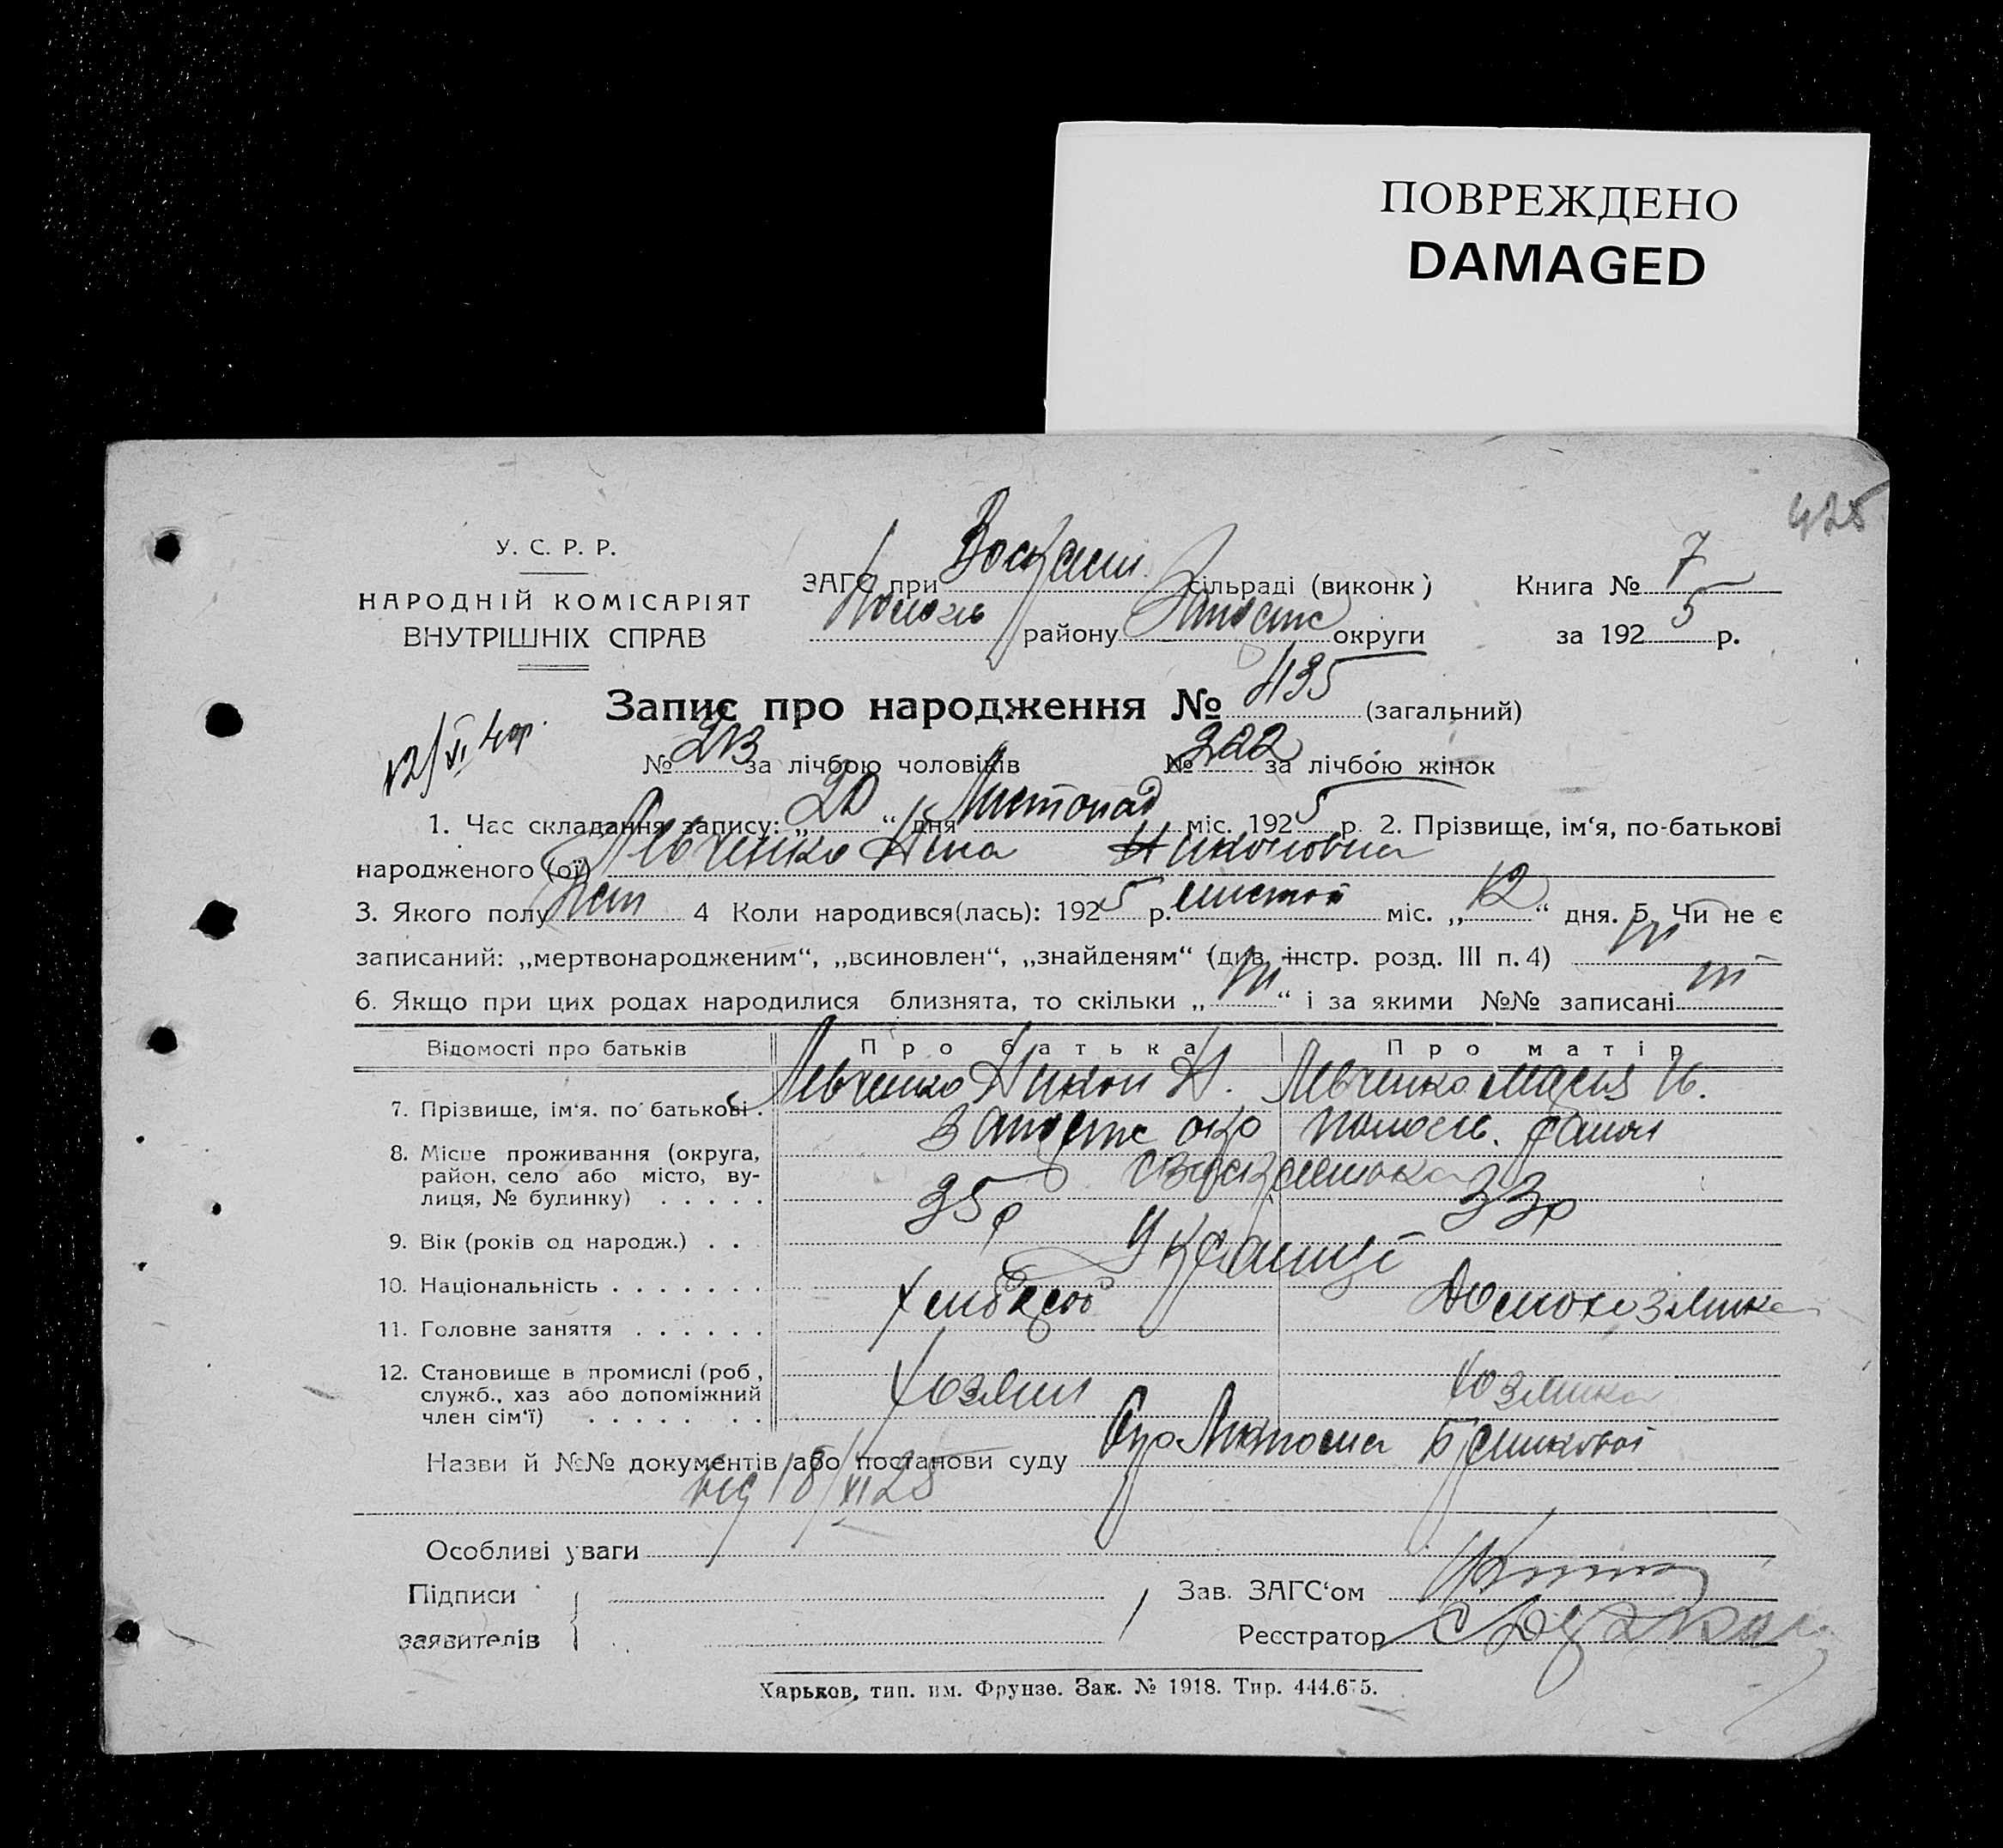 ПОВРЕЖДЕНО
DAMAGED
425
У. С. Р. Р.
НАРОДНІЙ КОМІСАРІЯТ
ВНУТРІШНІХ СПРАВ
ЗАГС при сільраді (виконк) Книга № 7
району округи за 1925 р.
Запис про народження № 435 (загальний)
12/XI
№ 213 за лічбою чоловіків № 222 за лічбою жінок
1. Час складання запису: „20“ дня Листопад міс. 1925 р. 2. Прізвище, ім‘я, по-батькові
народженого (ої) Левченко Ніна Никоновна
3. Якого полу жен 4 Коли народився(лась): 1925 р. листоп міс. „12“ дня. 5. Чи не є
записаний: „мертвонародженим“, „всиновлен“, „знайденям“ (див. інстр. розд. III п. 4) ні
6. Якщо при цих родах народилися близнята, то скільки „ні“ і за якими №№ записані ні
Відомості про батьків Про батька Про матір
7. Прізвище, ім‘я. по батькові. Левченко Никон Н. Левченко Мария
8. Місце проживання (округа, район, село або місто, вулиця, № будинку) Запорізс окр район
9. Вік (років од народж.) 35р 33р
10. Національність Українці
11. Головне заняття Хлібороб Домохозяйка
12. Становище в промислі (роб, служб., хаз або допоміжний член сім‘ї) Хозяин Хозяйка
Назви й №№ документів або постанови суду
від 18/XI 25
Особливі уваги
Підписи Зав. ЗАГС‘ом
заявителів Реєстратор
Харьков, тип. им. Фрунзе. Зак. № 1918. Тир. 444.675.